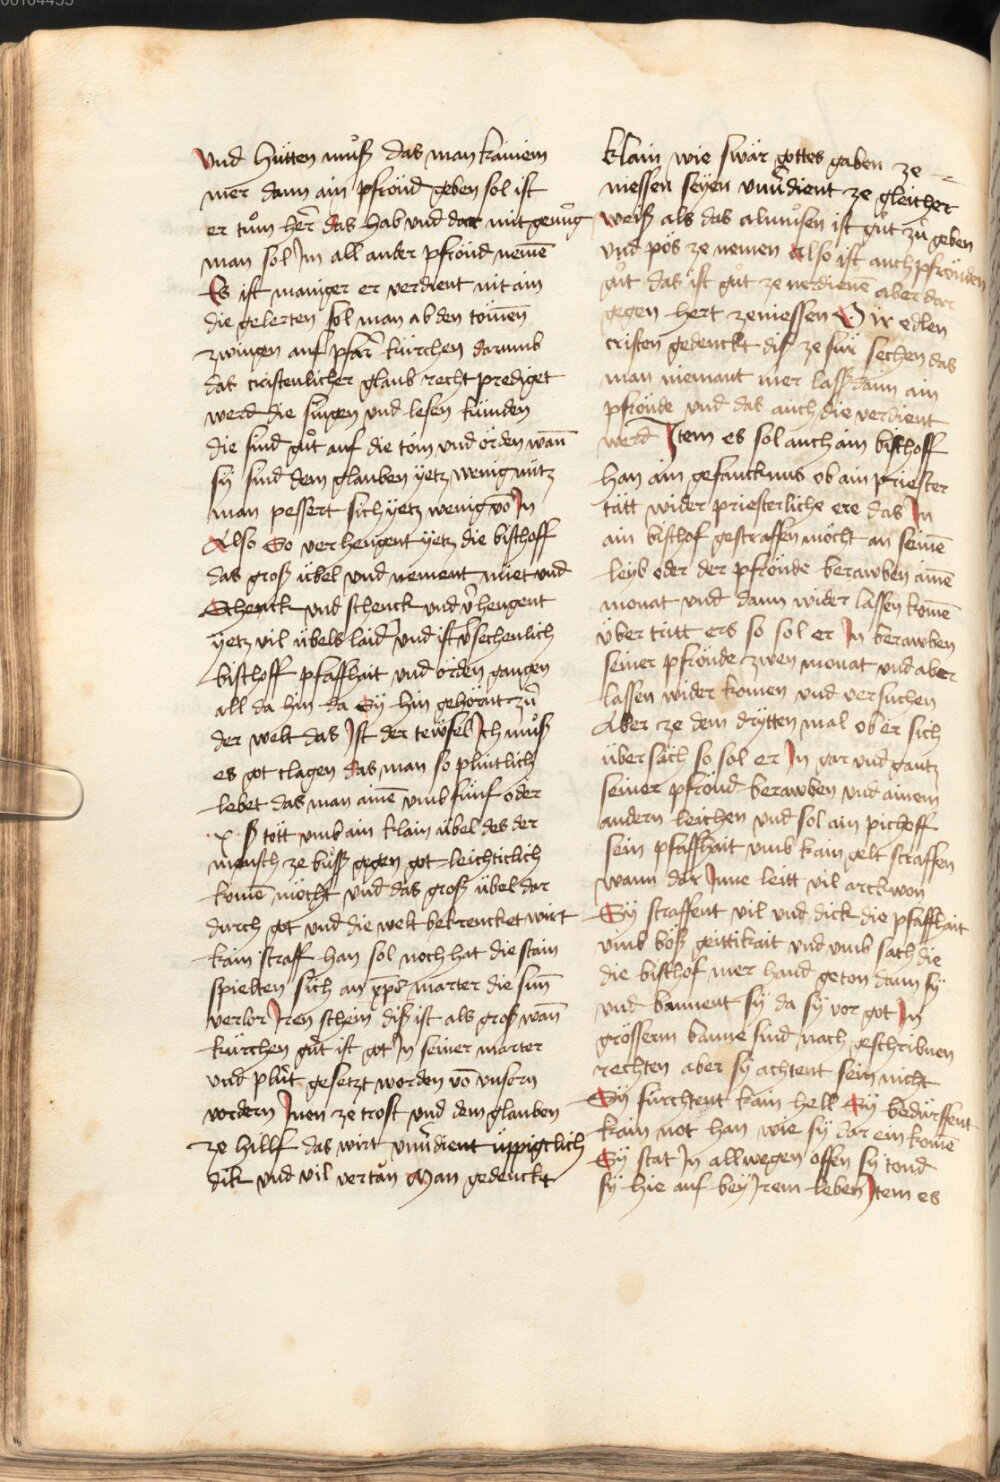 00104455
vnd hütten muͦß das man kainem
mer dann ain pfrönd geben sol ist
er tuͦm her̄ das hab vnd dar mit genuͦg
man sol Jm all ander pfrönd nemē
Es ist maniger er verdient nit ain
die gelerten sol man ab den tömen
zwingen auf pfar̄ kürchen darumb
das cristenlicher glaub recht prediget
werd die singen vnd lesen künden
die sind guͦt auf die töm vnd örden wan̄
sÿ sind dem glauben ÿetz wenig nütz
man pessert sich ÿetz wenig vō Jn
Also So verhengent ÿetz die bischoff
das groß übel vnd nement miet vnd
Schenck vnd schenck vnd v̄hengent
ÿetz vil übels laid̄ vnd ist v̄sechenlich
bischoff pfaffhait vnd örden gangen
all da hin da Sÿ hin gehörnt zuͦ
der welt das Jst der tewfel Jch muͦß
es got clagen das man so plintlich
lebet das man ainē vmb fünf oder
.x. ß tött vmb ain klain übel des der
mensch ze buͦß gegen got leichticlich
komē möcht vnd das groß übel dar
durch got vnd die welt bekrencket wirt
kain straff han sol noch hat die stain
spielten sich an xp̄s marter die sun̄
verlor Jren schein diß ist als groß wan̄
kürchen guͦt ist got Jn seiner marter
vnd pluͦt gesetzt worden vō vnsern
vordern Jnen ze trost vnd dem glauben
ze hillf das wirt vnv̄dient üppigclich
dik vnd vil vertan Man gedenckt
klain wie swär gottes gaben ze
niessen seÿen vnv̄dient ze gleicher
weiß als das almuͦsen ist guͦt zuͦ geben
vnd pös ze nemen Also ist auch pfrönden
guͦt das ist guͦt ze verdienē aber dar
gegen hert ze niessen Ir edlen
cristen gedenckt diß ze für sechen das
man niemant mer lass dann ain
pfrönde vnd das auch die verdient
werd Jtem es sol auch ain bischoff
han ain gefancknus ob ain priester
tätt wider priesterliche ere das Jn
ain bischof gestraffen möcht an seinē
leÿb oder der pfrönde berawben ainē
monat vnd dann wider lassen komē
über tritt ers so sol er Jn berawben
seiner pfrönde zwen monat vnd aber
lassen wider komen vnd versuchen
Aber ze dem drÿtten mal ob er sich
über säch so sol er Jn gar vnd gantz
seiner pfrönd berawben vnd ainem
andern leichen vnd sol ain pischoff
sein pfaffhait vmb kain gelt straffen
wann dar Jnne leitt vil arckwon
Sÿ straffent vil vnd dick die pfaffhait
vmb böß geittikait vnd vmb sach die
die bischof mer hand geton dann sÿ
vnd bannent sÿ da sÿ vor got Jn
grösserm banne sind nach geschribnen
rechten aber sÿ achtent sein nicht
Sÿ fürchtent kain hell Sÿ bedürffent
kain not han wie sÿ dar ein komē
Sÿ stat Jn allwegen offen sÿ tond
sÿ hie auf beÿ Jrem leben Jtem es